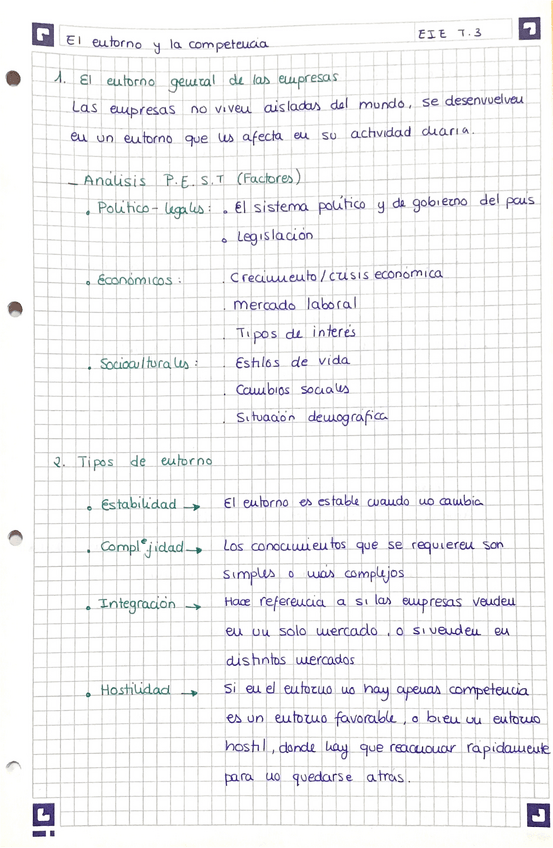 El entorno y la competencia
EIE T.3
1. El entorno general de las empresas
Las empresas no viven aisladas del mundo, se desenvuelven
en un entorno que les afecta en su actividad diaria.
- Análisis P.E.S.T (Factores)
• Político-legales: • El sistema político y de gobierno del país
• Legislación
• Económicos: . Crecimiento/crisis económica
. mercado laboral
. Tipos de interés
• Socioculturales: . Estilos de vida
. Cambios sociales
. Situación demográfica
2. Tipos de entorno
• Estabilidad → El entorno es estable cuando no cambia
• Complejidad → Los conocimientos que se requieren son
simples o más complejos
• Integración → Hace referencia a si las empresas venden
en un solo mercado, o si venden en
distintos mercados
• Hostilidad → Si en el entorno no hay apenas competencia
es un entorno favorable, o bien un entorno
hostil, donde hay que reaccionar rápidamente
para no quedarse atrás.